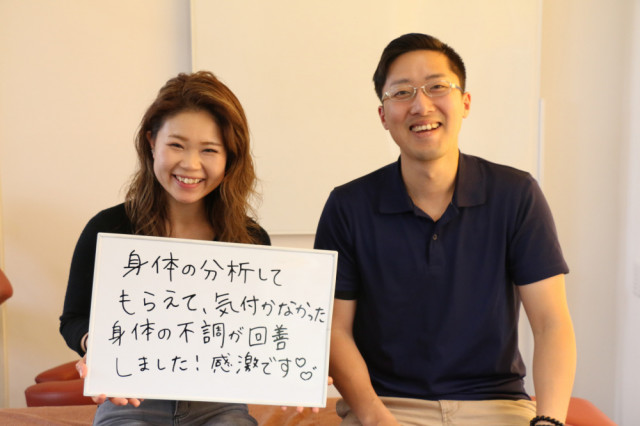 身体の分析して
もらえて、気付かなかった
身体の不調が回善
しました!感激です♡